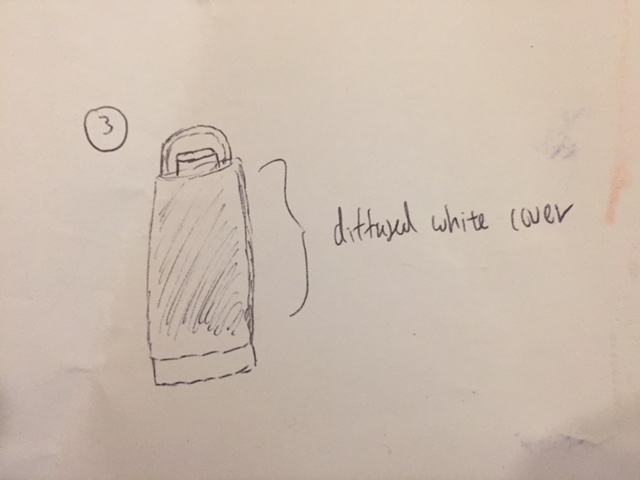 3
diffused white cover